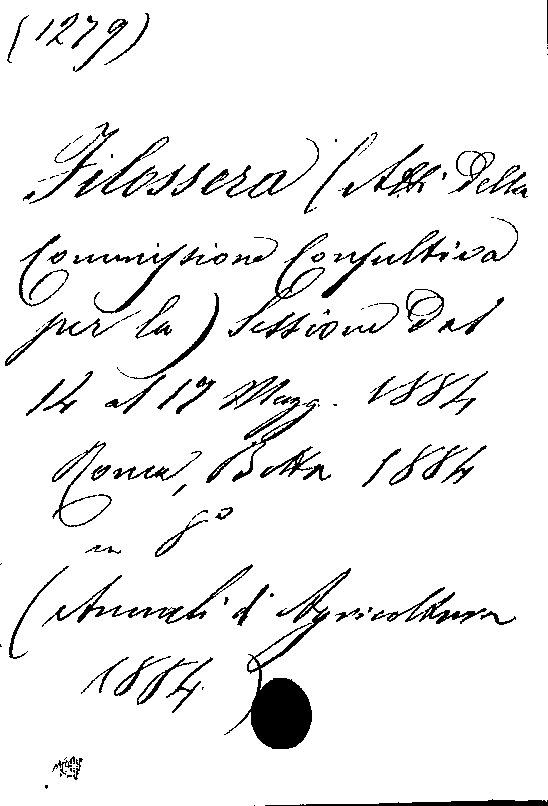 (1279)
Filossera (Atti della
Commissione Consultiva
per la) Sessione dal
14 al 17 Magg. 1884
Roma, Botta 1884
in 8°
(Annali di Agricoltura
1884)